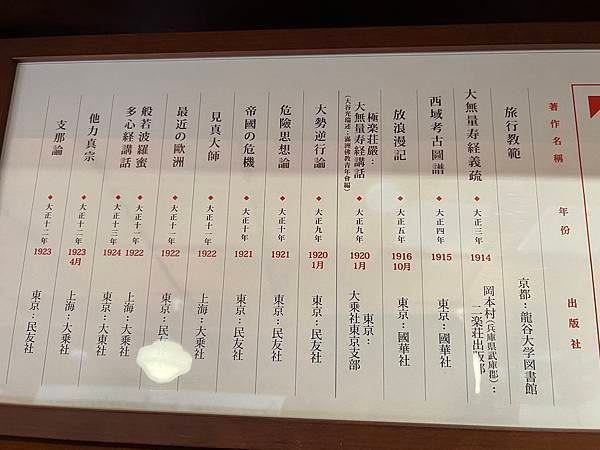 著作名稱 年份 出版社
旅行教範 京都：龍谷大学図書館
大無量寿経義疏 ◆ 大正三年 1914 岡本村(兵庫県武庫郡)：二楽荘出版部
西域考古圖譜 ◆ 大正四年 1915 東京：國華社
放浪漫記 ◆ 大正五年 1916 10月 東京：國華社
極楽荘嚴：大無量寿経講話 (大谷光瑞述；滿洲佛教青年會編) ◆ 大正九年 1920 1月 東京：大乗社東京支部
大勢逆行論 ◆ 大正九年 1920 1月 東京：民友社
危險思想論 ◆ 大正十年 1921 東京：民友社
帝國の危機 ◆ 大正十年 1921 東京：民友社
見真大師 ◆ 大正十一年 1922 上海：大乗社
最近の欧洲 ◆ 大正十一年 1922 東京：民
般若波羅蜜多心経講話 ◆ 大正十一年 1922 上海：大乗社
◆ 大正十三年 1924 東京：大東社
他力真宗 ◆ 大正十二年 1923 4月 上海：大乗社
支那論 ◆ 大正十二年 1923 東京：民友社